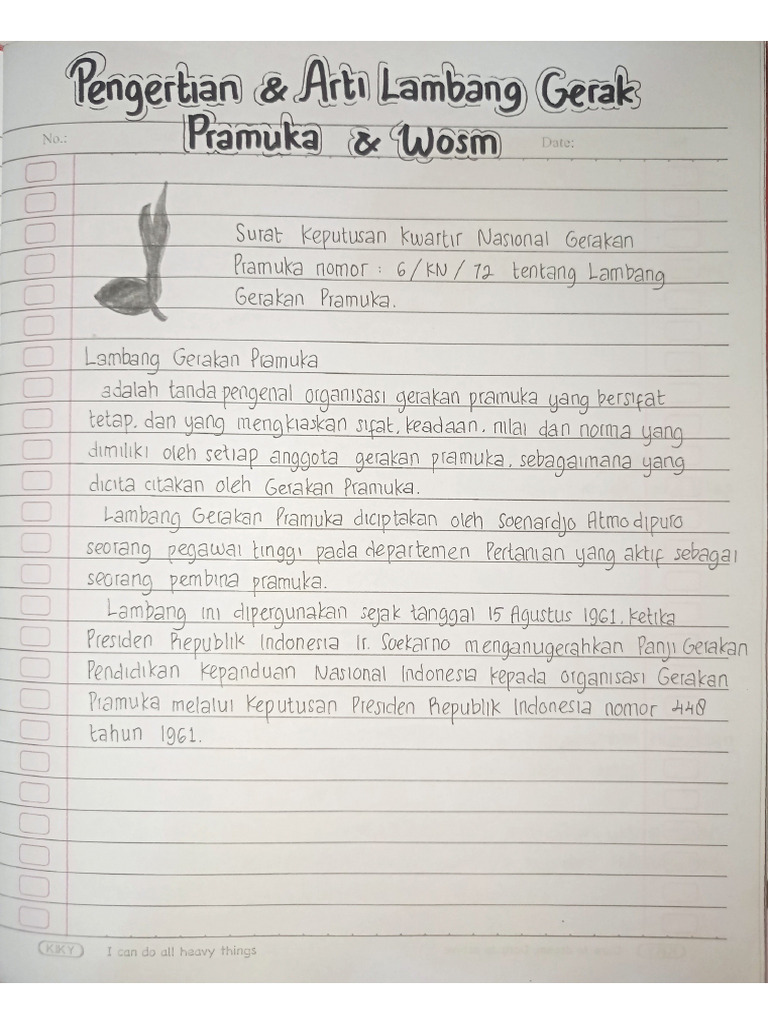 Pengertian & Arti Lambang Gerak
Pramuka & Wosm
No.:
Date:
Surat Keputusan Kwartir Nasional Gerakan
Pramuka nomor : 6/KN/72 tentang Lambang
Gerakan Pramuka.
Lambang Gerakan Pramuka
adalah tanda pengenal organisasi gerakan pramuka yang bersifat
tetap. dan yang mengkiaskan sifat. keadaan. nilai dan norma yang
dimiliki oleh setiap anggota gerakan pramuka. sebagaimana yang
dicita citakan oleh Gerakan Pramuka.
Lambang Gerakan Pramuka diciptakan oleh Soenardjo Atmodipuro
seorang pegawai tinggi pada departemen Pertanian yang aktif sebagai
seorang pembina pramuka.
Lambang ini dipergunakan sejak tanggal 15 Agustus 1961. Ketika
Presiden Republik Indonesia Ir. Soekarno menganugerahkan Panji Gerakan
Pendidikan Kepanduan Nasional Indonesia kepada organisasi Gerakan
Pramuka melalui Keputusan Presiden Republik Indonesia nomor 448
tahun 1961.
KIKY I can do all heavy things